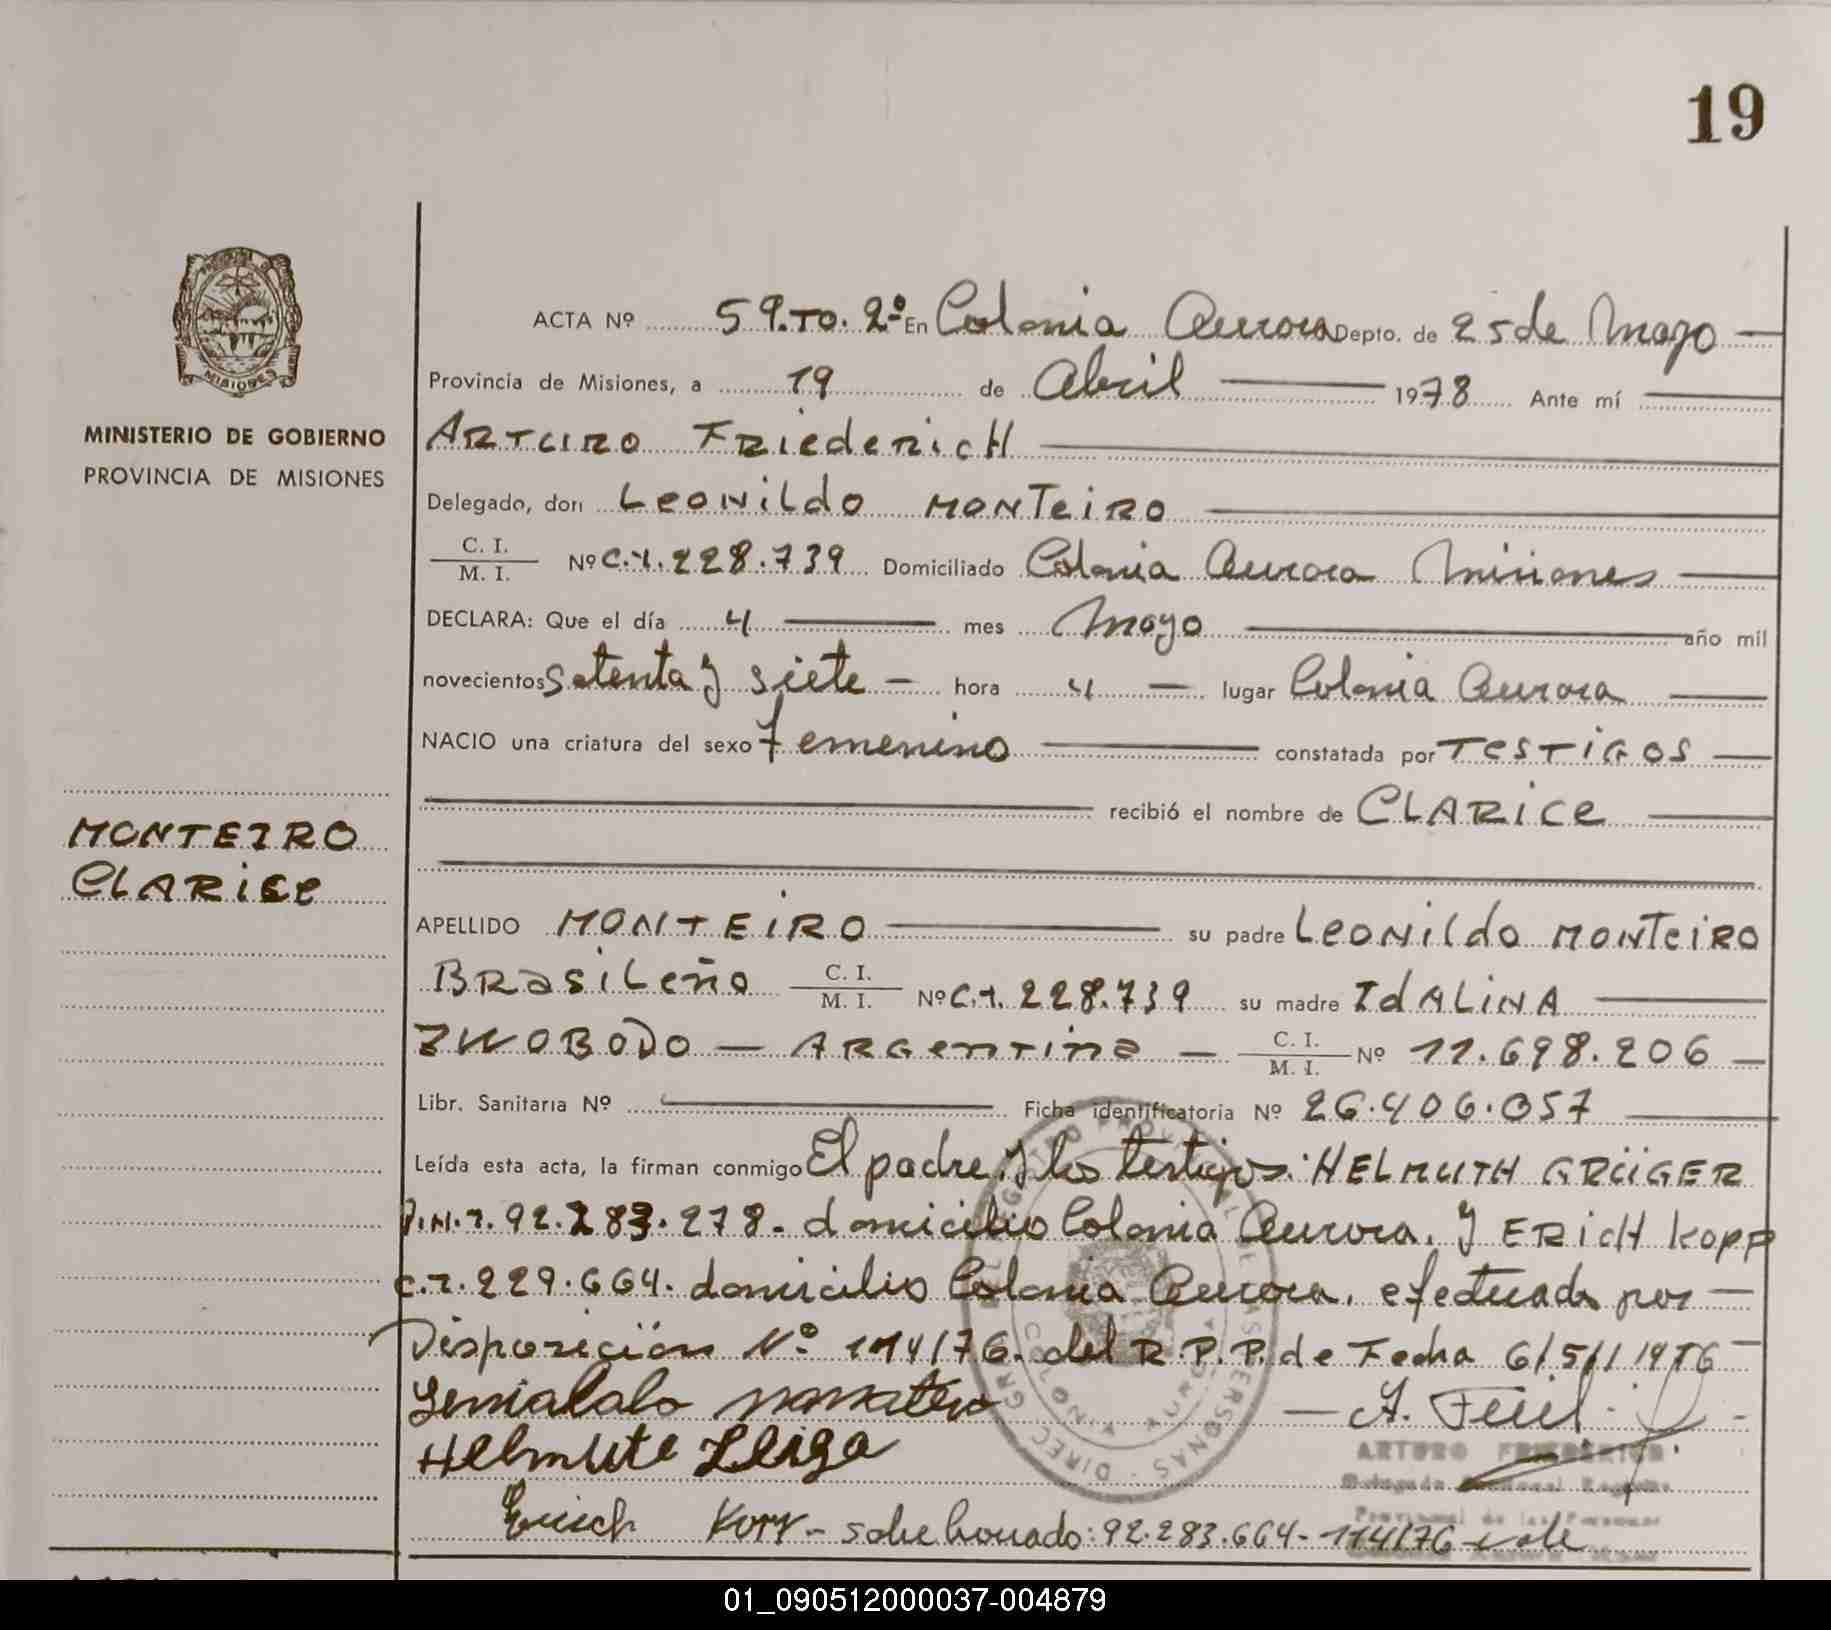 19
ACTA Nº 59.TO. 2º En Colonia Aurora Depto. de 25 de Mayo
Provincia de Misiones, a 19 de Abril 1978 Ante mí
MINISTERIO DE GOBIERNO
PROVINCIA DE MISIONES
ARTURO FRIEDERICH
Delegado, don LEONILDO MONTEIRO
C. I.
M. I. Nº C.I. 228.739 Domiciliado Colonia Aurora Misiones
DECLARA: Que el día 4 mes Mayo año mil
novecientos setenta y siete hora 4 lugar Colonia Aurora
NACIO una criatura del sexo femenino constatada por TESTIGOS
recibió el nombre de CLARICE
MONTEIRO
CLARICE
APELLIDO MONTEIRO su padre LEONILDO MONTEIRO
BRASILEÑO C. I.
M. I. Nº C.I. 228.739 su madre IDALINA
ZWOBODO — ARGENTINA — C. I.
M. I. Nº 11.698.206
Libr. Sanitaria Nº Ficha identificatoria Nº 26.406.057
Leída esta acta, la firman conmigo El padre y los testigos: HELMUTH GRÜGER
D.N.I. 92.283.278- domicilio Colonia Aurora. y ERICH KOPP
C.I. 229.664. domicilio Colonia Aurora. efectuada por
Disposición Nº 114/76. del R.P.P. de Fecha 6/5/1976
Erich Kopp - sobre borrado: 92.283.664- 114/76 vale
ARTURO FRIEDERICH
01_090512000037-004879